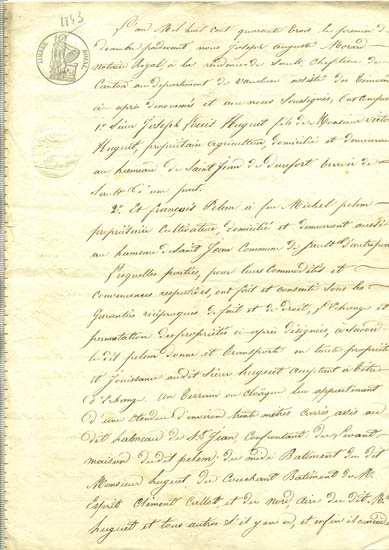 1843
TIMBRE ROYAL
L'an Mil huit cent quarante trois le premier de
décembre pardevant nous Joseph August Morard
Notaire Royal à la résidence de Sault, Chef lieu de
Canton au département de Vaucluse assisté des témoins
ci après denommés et avec nous soussignés, ont comparu
1° Sieur Joseph Louis Huguet fils de Monsieur Victor
Huguet, propriétaire agriculteur domicilié et demeurant
au hameau de Saint Jean de Durfort terroir de
Sault d'une part.
2° Et françois Pelem à feu Michel pelem
propriétaire Cultivateur, domicilié et demeurant aussi
au hameau de Saint Jean Commune de Sault d'autre part
Lesquelles parties, pour leurs commodités et
Convenances respectives, ont fait et consenti sous les
Garanties réciproques de fait et de Droit, l'Echange et
permutation des propriétés ci après désignées, à savoir
le dit pelem donne et transporte en toute propriété
et Jouissance audit Sieur huguet acceptant à titre
d'Echange. Un terrain ou lui appartenant
d'une étendue d'environ trente mètres carrés, assis au
dit hameau de St Jean Confrontant du levant
maison dudit pelem, du midi Batiment du dit
Monsieur huguet, du Couchant Batiment de M.
Esprit Clément Cullet, et du Nord, aire du dit Mr
huguet et tous autres s'il y en a, et enfin il